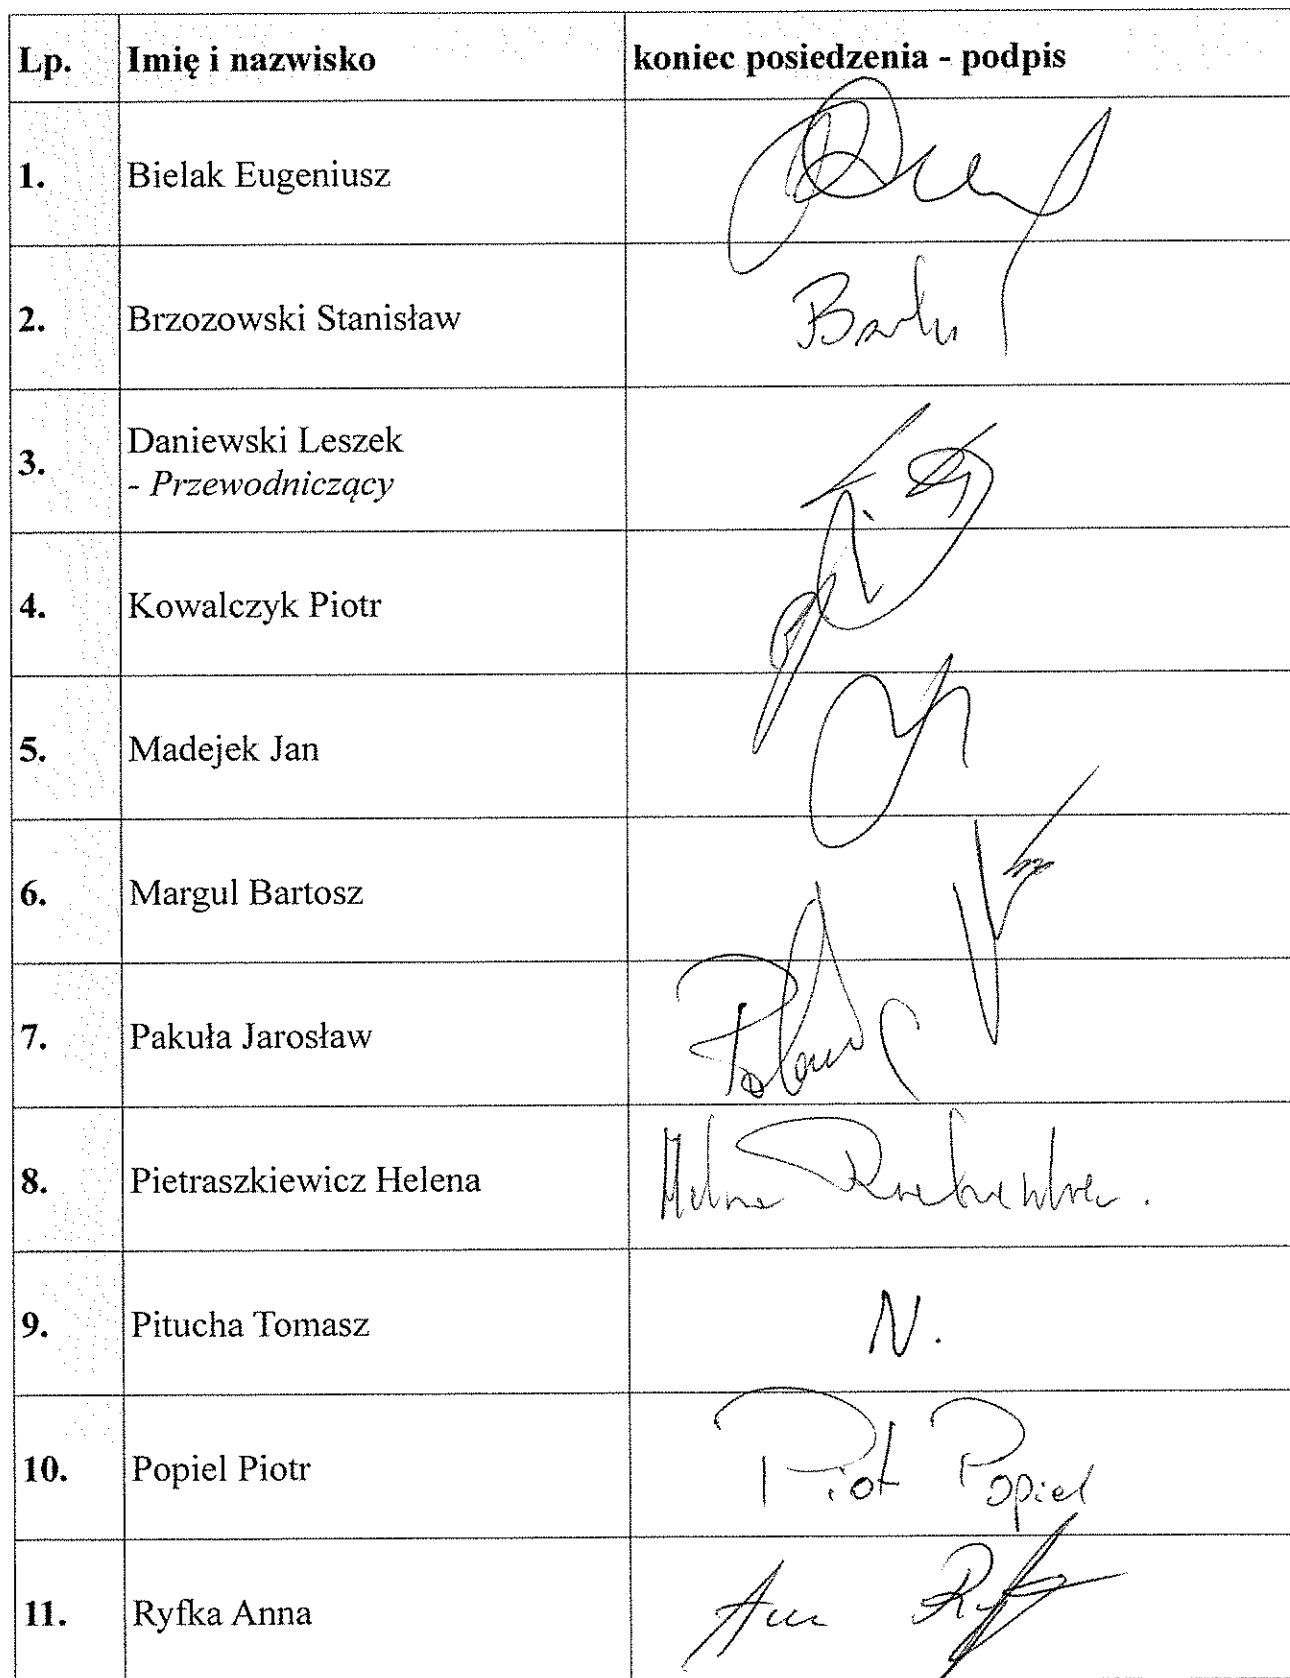 Lp. Imię i nazwisko koniec posiedzenia - podpis
1. Bielak Eugeniusz
2. Brzozowski Stanisław
3. Daniewski Leszek
- Przewodniczący
4. Kowalczyk Piotr
5. Madejek Jan
6. Margul Bartosz
7. Pakuła Jarosław
8. Pietraszkiewicz Helena
9. Pitucha Tomasz N.
10. Popiel Piotr Piotr Popiel
11. Ryfka Anna